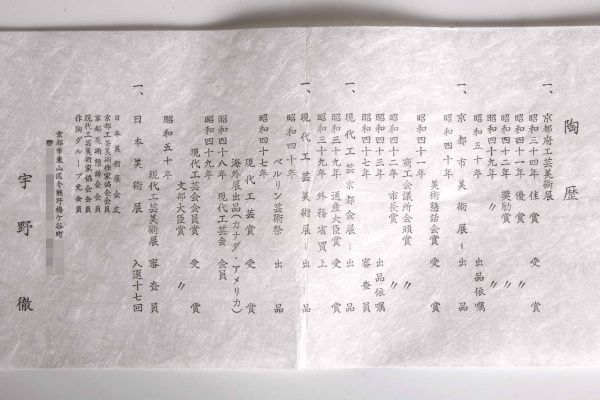 陶歴
一、京都府工芸美術展
昭和三四年 佳賞 受賞
昭和四一年 優賞 〃
昭和四二年 奨励賞 〃
昭和五十年 〃 出品依嘱
一、京都市美術展ー出品
昭和四十年
美術懇話会賞 受賞
昭和四一年
商工会議所会頭賞 〃
昭和四二年 市長賞 〃
昭和四七年 出品依嘱
昭和五十年 審査員
一、現代工芸京都会展ー出品
昭和三九年 通産大臣賞 受賞
昭和三九年 外務省買上
一、現代工芸美術展ー出品
昭和四十年
ベルリン芸術祭 出品
昭和四七年
現代工芸賞 受賞
海外展出品(カナダ・アメリカ)
昭和四八年 現代工芸会 会員
昭和四九年
現代工芸会会員賞 受賞
文部大臣賞 〃
昭和五十年
現代工芸美術展 審査員
一、日本美術展 入選十七回
日本美術展会友
京都工芸美術作家協会会員
京都美術懇話会会員
現代工芸美術家協会会員
作陶グループ光会会員
京都市東山区今熊野梅ケ谷町
宇野徹